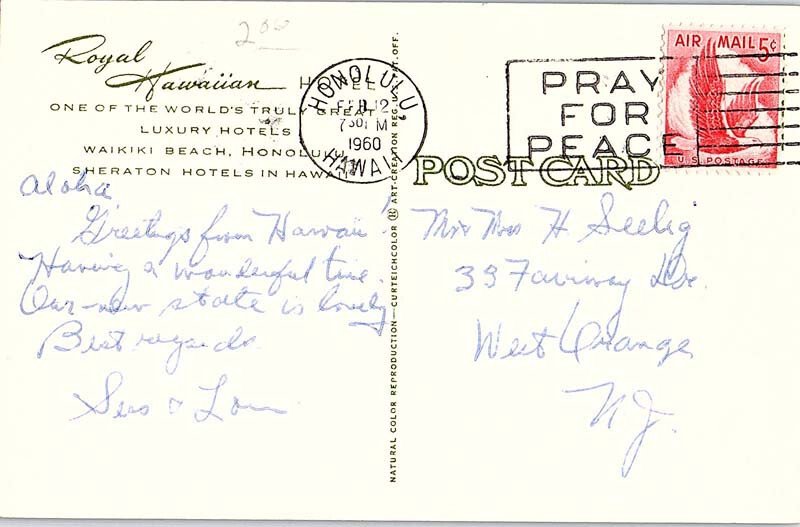 2.00
Royal
Hawaiian HOTEL
ONE OF THE WORLD'S TRULY GREAT
LUXURY HOTELS
WAIKIKI BEACH, HONOLULU
SHERATON HOTELS IN HAWAII
HONOLULU,
FEB 12
730 PM
1960
HAWAII
PRAY
FOR
PEACE
AIR MAIL 5¢
U.S. POSTAGE
POST CARD
NATURAL COLOR REPRODUCTION—CURTEICHCOLOR ® ART-CREATION REG. U.S. PAT. OFF.
Aloha
Greetings from Hawaii!
Having a wonderful time.
Our new state is lovely
Best regards
& Lou
Mr & Mrs H Seelig
39 Fairway Dr.
West Orange
N.J.